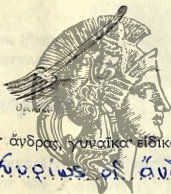 ἄνδρας, γυναῖκα· εἰδικ
Κυρίως οἱ ἄνδ